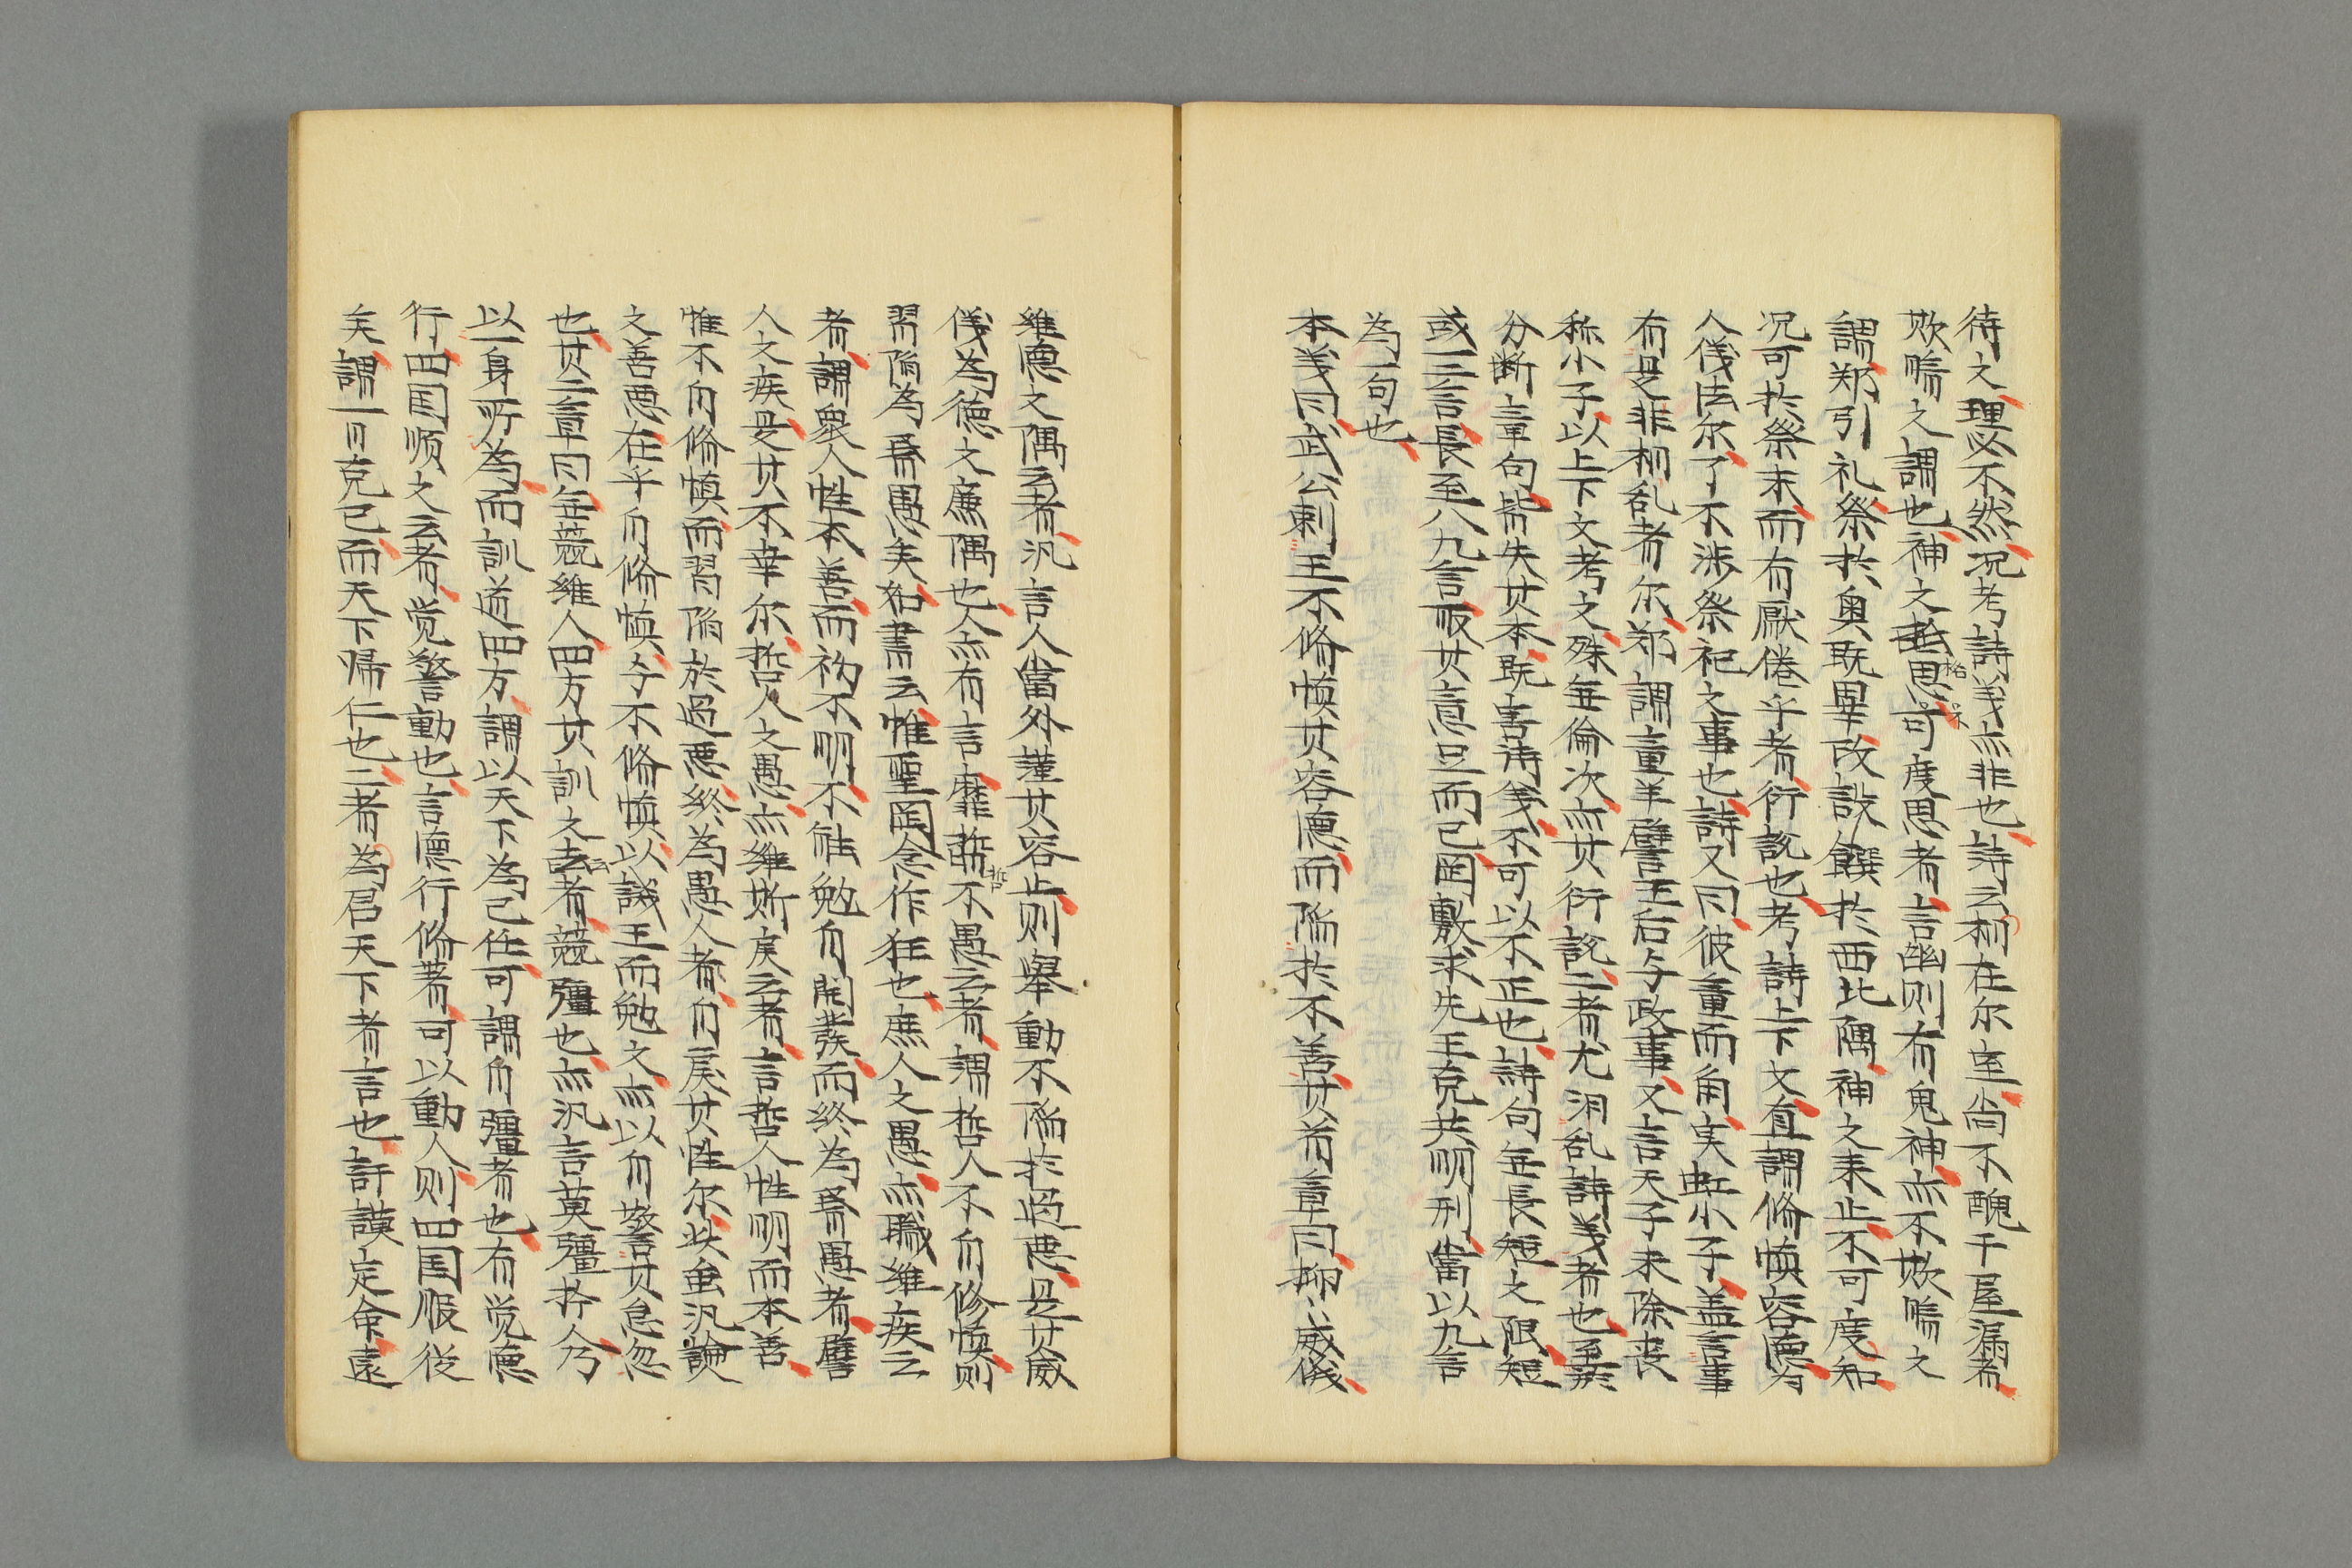 待之理必不然况考詩義亦非也詩云相在尔室尚不醜于屋漏者
欺嗚之謂也神之格思不可度思者言幽则有鬼神亦不欺嗚之
謂郑引礼祭於奥既畢改設饌於西北隅神之来止不可度知
况可於祭末而有厭倦乎者衍説也考詩上下文直謂修慎容德為
人儀法尔了不渉祭祀之事也詩又曰彼童而角実虹小子盖言事
有是非相乱者尔郑謂童羊譬王后与政事又言天子未除丧
称小子以上下文考之殊無倫次亦其衍説二者尤汨乱詩義者也至於
分断章句皆失其本既害诗義不可以不正也詩句無長短之限短
或一二言長至八九言取其意足而已罔敷求先王克共明刑當以九言
為一句也
本義曰武公刺王不修慎其容德而陥於不善其首章曰抑〻威儀
維德之隅云者汎言人當外謹其容止则舉動不陥於過悪是其威
儀為德之廉隅也人亦有言靡哲不愚云者謂哲人不自修慎则
習陥為昏愚矣如書云惟聖罔念作狂也庶人之愚亦職維疾云
者謂衆人性本善而初不明不能勉自開發而終為昏愚者譬
人之疾是其不幸尔哲人之愚亦維斯戾云者言哲人性明而本善
惟不自修慎而習陥於過悪終為愚人者自戾其性尔此虽汎論
之善悪在乎自修慎与不修慎以譏王而勉之亦以自警其怠忽
也其二章曰無競維人四方其訓之云者競彊也亦汎言莫彊於人乃
以一身所為而訓道四方謂以天下為己任可謂自彊者也有觉德
行四国顺之云者觉警動也言德行修著可以動人则四国服従
矣謂一日克己而天下帰仁也二者為君天下者言也訏謨定命遠